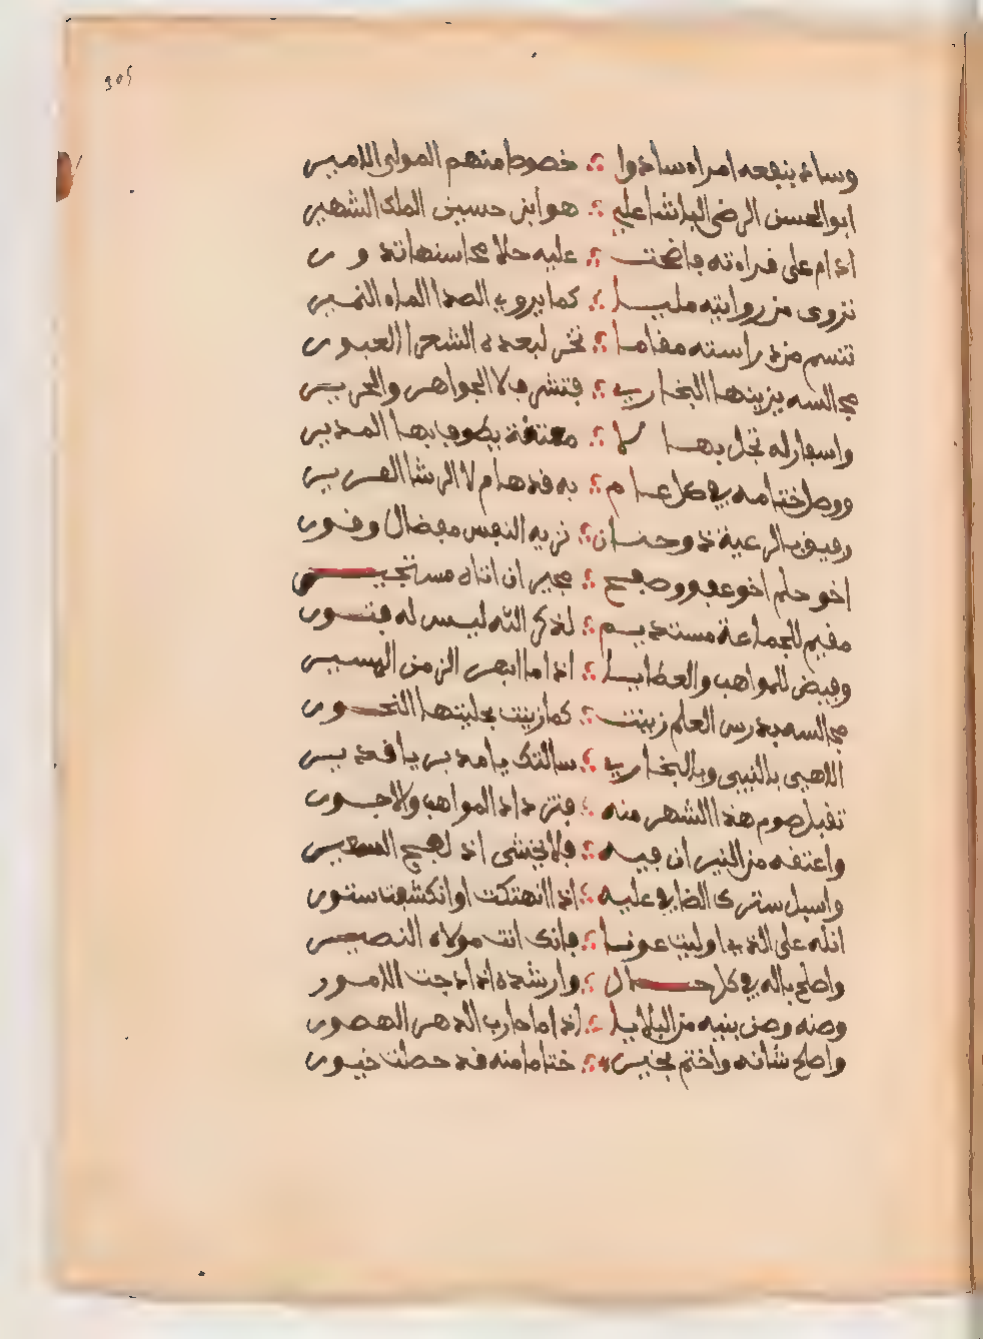 وساد بنفعه امراء سادوا ؞ خصوصا منهم المولى الامير
ابو الحسن الرضى الباشا علي ؞ هو ابن حسين الملك الشهير
ادام على قراءته فاضحت ؞ عليه حلا محاسنها تدور
تروى من روايته مليا ؞ كما يروي الصدا الماء النمير
تنسم من دراسته مقاما ؞ تخر لبعده الشعرا العبور
مجالسه يزينها البخاري ؞ فتنشر بالجواهر والحرير
واسفار له تجل بها ؞ معتقة يطوف بها المدير
ووصل ختامه في كل عام ؞ به قد هام لا الرشا الغرير
رفيق بالرعية ذو حنان ؞ نزيه النفس مفضال وقور
اخو حلم اخو عفو وصفح ؞ مجير ان اتاه مستجير
مقيم للجماعة مستديم ؞ لذكر الله ليس له فتور
وفيض للمواهب والعطايا ؞ اذا ما ابهر الزمن العسير
مجالسه بدرس العلم زينت ؞ كما زينت بحليتها النحور
الاهي بالنبي وبالبخاري ؞ سالتك يا مدبر يا قدير
تقبل صوم هذا الشهر منه ؞ فتزداد المواهب والاجور
واعتقه من النيران فيه ؞ فلا يخشى اذ لهج السعير
واسبل سترك الضافي عليه ؞ اذا انهتكت او انكشفت ستور
انله على الذي اوليت عونا ؞ فانك انت مولاه النصير
واصلح باله في كل حال ؞ وارشده اذا دجت الامور
وصنه وصن بنيه من البلايا ؞ اذا ما حارب الدهر الهصور
واصلح شانه واختم بخير ؞ ختاما منه قد حصلت خيور